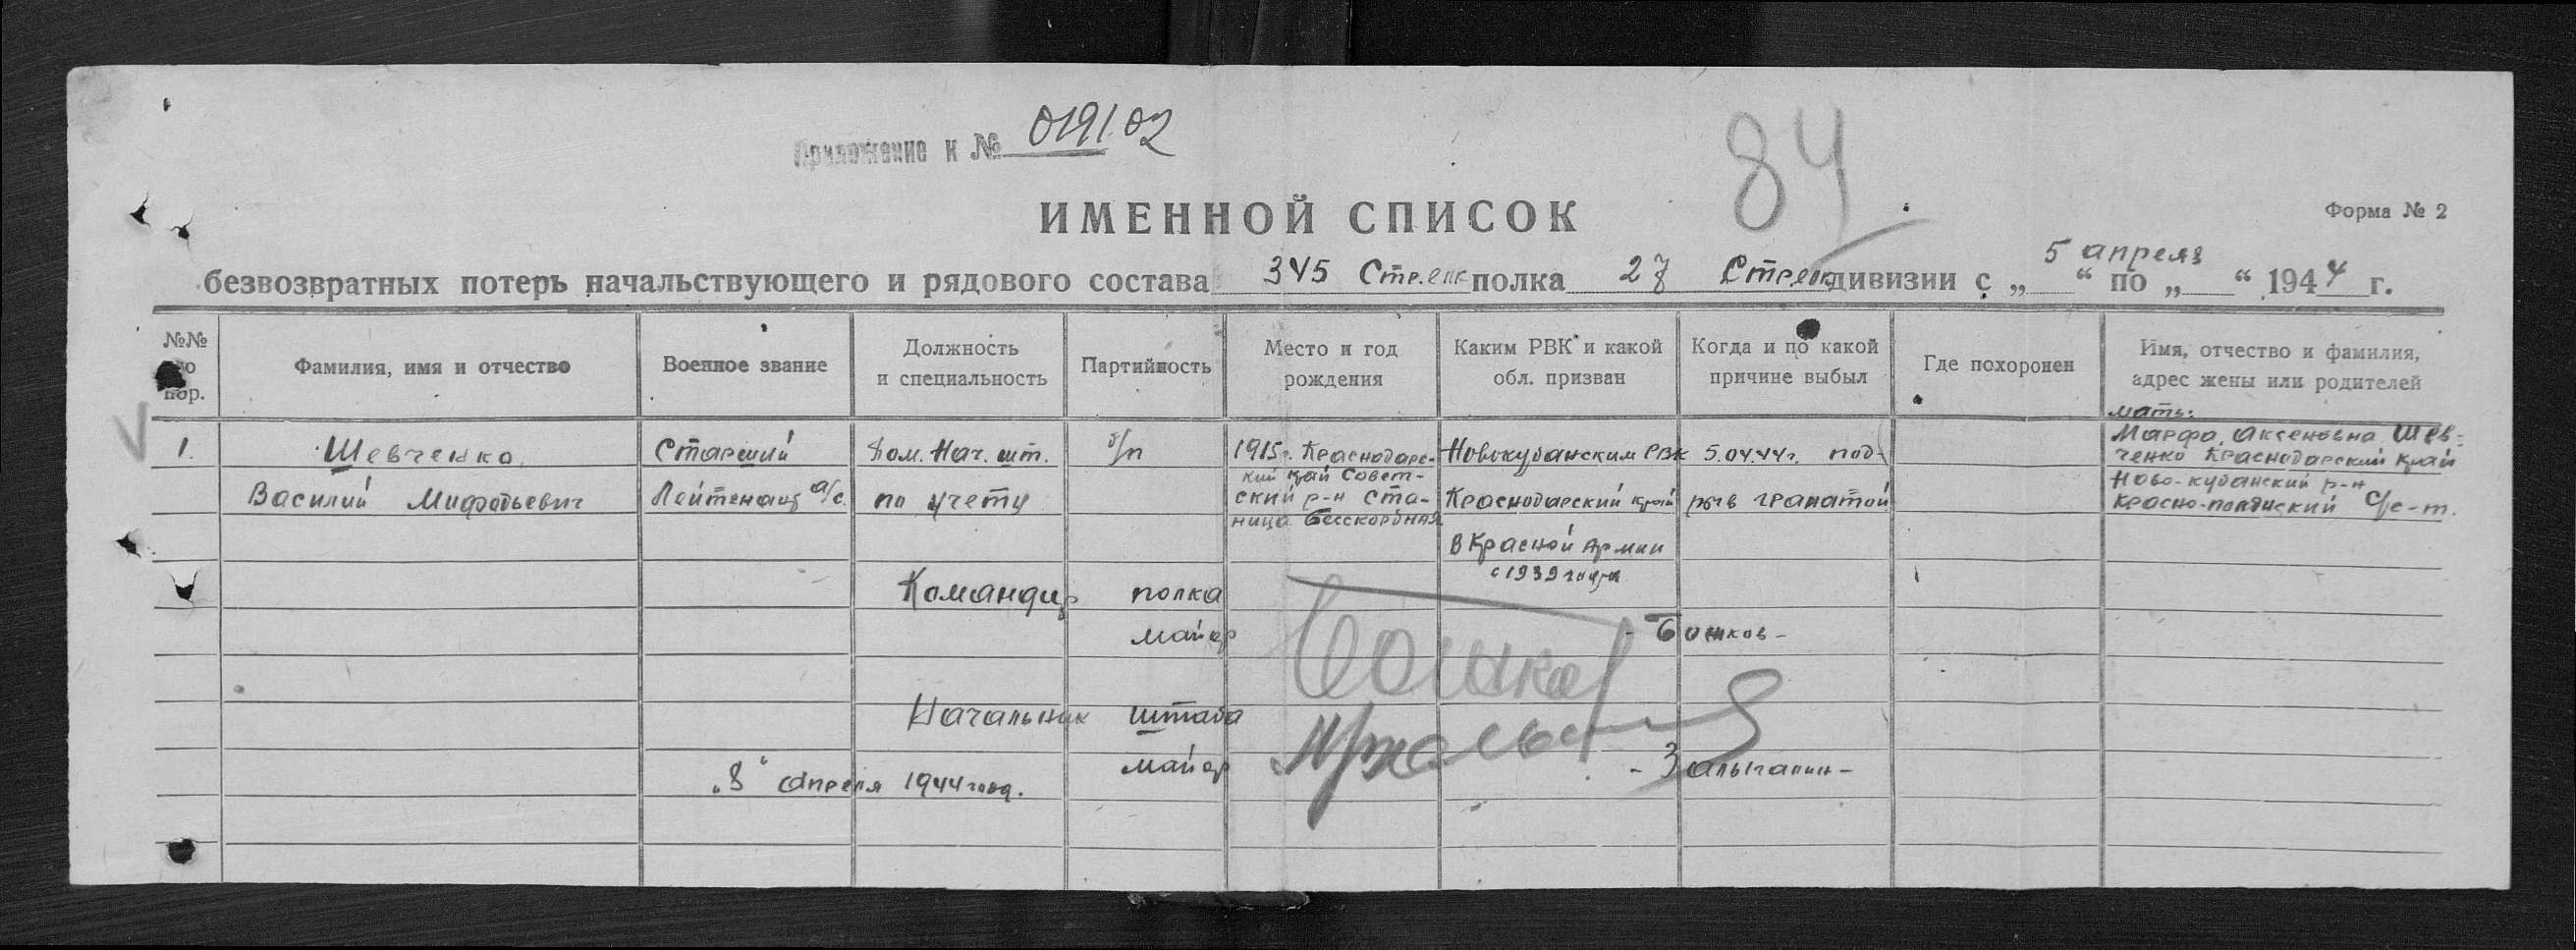 Приложение к № 019102
84
ИМЕННОЙ СПИСОК
Форма № 2
безвозвратных потерь начальствующего и рядового состава 345 Стрелк полка 27 Стрелк дивизии с „ 5 апреля “ по „ “ 1944 г.
№№ по пор.
Фамилия, имя и отчество
Военное звание
Должность
и специальность
Партийность
Место и год
рождения
Каким РВК и какой
обл. призван
Когда и по какой
причине выбыл
Где похоронен
Имя, отчество и фамилия,
адрес жены или родителей
1.
Шевченко
Василий Мифодьевич
Старший
Лейтенант а/с.
Пом. Нач. шт.
по учету
б/п
1915г. Краснодарс-
кий край Совет-
ский р-н ста-
ница Бесскорбная
Новокубанским РВК
Краснодарский край
в Красной Армии
с 1939 года
5.04.44г. под-
рыв гранатой
мать:
Марфа Аксеновна Шев-
ченко Краснодарский край
Ново-кубанский р-н
Красно-полянский с/с-т.
Командир полка
майор
- Божков -
Начальник штаба
майор
„8“ апреля 1944 года.